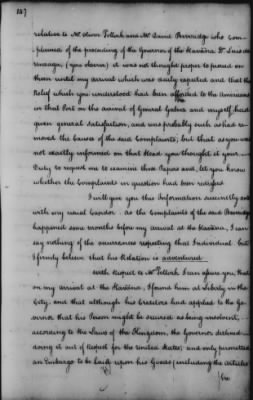 relative to Mr. Oliver Pollock and Mr. David Beveridge who com-
plained of the proceeding of the Governor of the Havana Dn. Luis de
Unzaga, (you observe) it was not thought proper to proceed on
them until my arrival which was daily expected and that the
Relief which you understood had been afforded to the Americans
in that Port on the arrival of General Galvez and myself, had
given general satisfaction, and was probably such as had re-
moved the causes of the said Complaints; but that as you was
not exactly informed on that Head you thought it your
Duty to request me to examine those Papers and let you know
whether the Complaints in question had been redressed
I will give you this Information succinctly and
with my usual Candor. As the Complaints of the said Beveridge
happened some months before my arrival at the Havana, I can
say nothing of the occurrences respecting that Individual but
I firmly believe that his Relation is adventured.
With Respect to Mr. Pollock I can assure you, that
on my arrival at the Havana, I found him at Liberty in the
City, and that although his Creditors had applied to the Go-
vernor that his Person might be secured as being insolvent,
according to the Laws of the Kingdom, the Governor declined
doing it out of Respect for the United States; and only permitted
an Embargo to be laid upon his Goods (including the articles